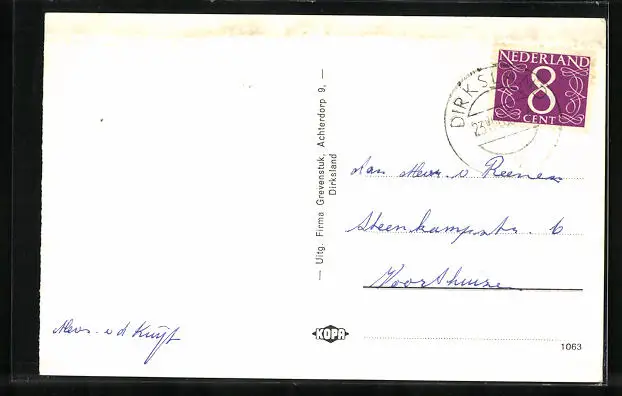 NEDERLAND
8
CENT
DIRKSL
— Uitg. Firma Grevenstuk, Achterdorp 9, —
Dirksland
Aan Mevr. v Reenen
Steenkampstr. 6
Voorthuizen
Mevr. v d Kuijt
KOPA
1063